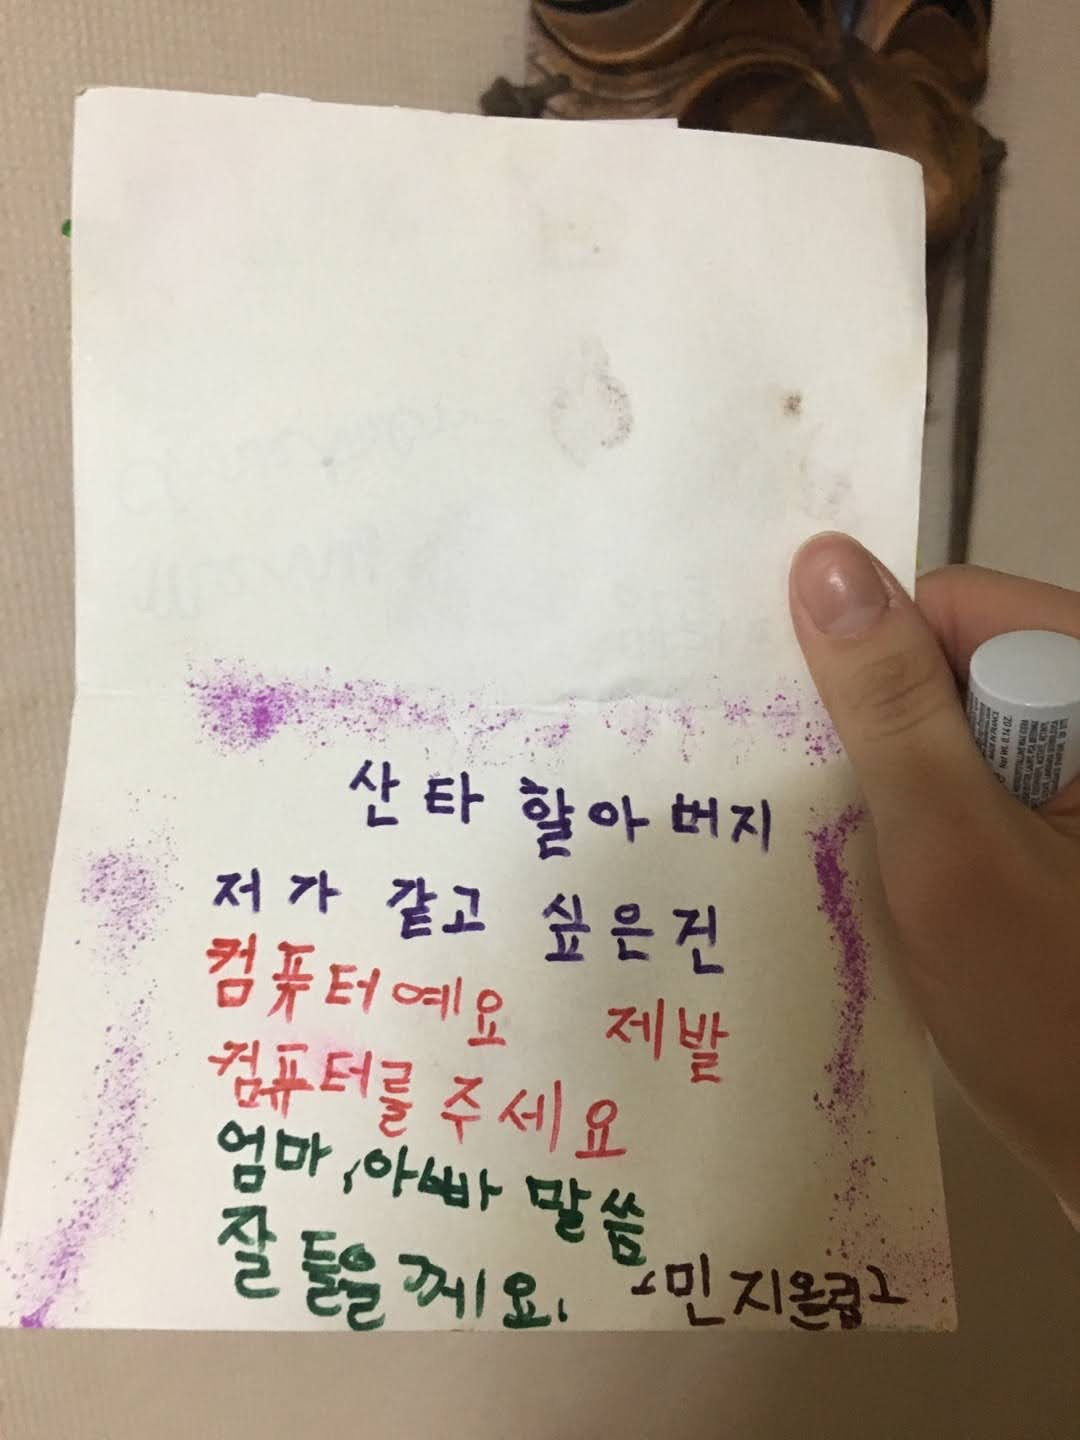 산타 할아버지
저가 같고 싶은건
컴퓨터예요 제발
컴퓨터를 주세요
엄마, 아빠 말씀
잘 들을께요.
-민지올림-
MADE IN FRANCE
Net Wt. 0.14 OZ.